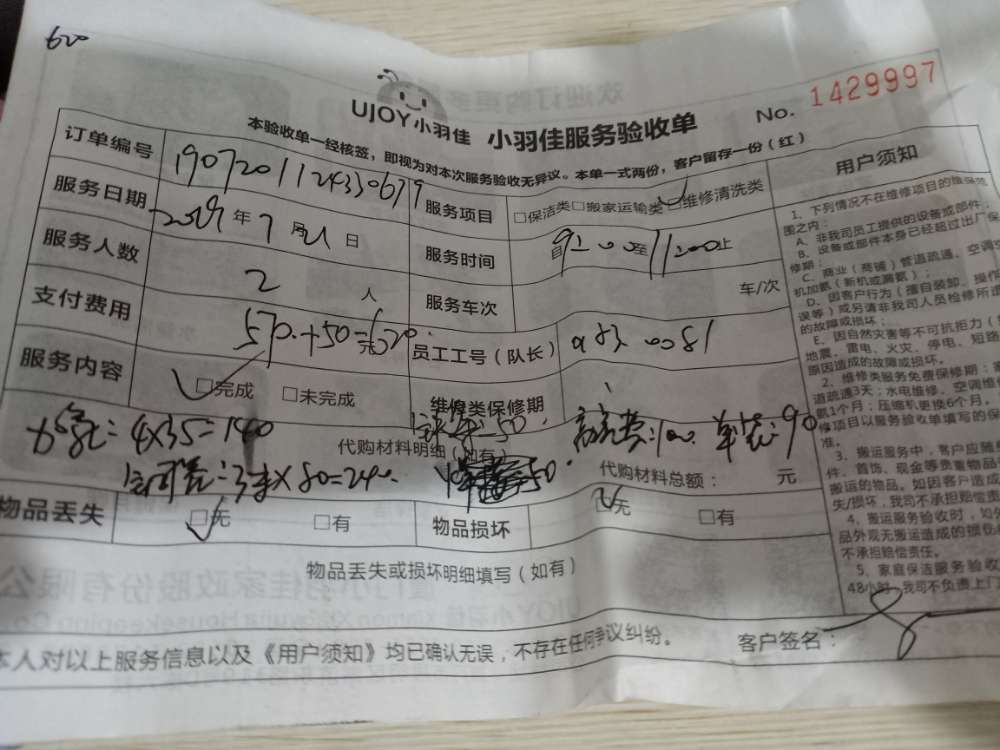 620
UJOY小羽佳 小羽佳服务验收单 No. 1429997
本验收单一经核签，即视为对本次服务验收无异议。本单一式两份，客户留存一份（红）
订单编号 190720112433067 服务项目 □保洁类□搬家运输类□维修清洗类
服务日期 2019年7月21日 服务时间 自9:00至11:00止
服务人数 2人 服务车次 车/次
支付费用 570.+50=620 元 员工工号（队长） 0081
服务内容 □完成 □未完成 维修类保修期
4X35=140 50 高空费:100 90
代购材料明细（如有）
X80=240 50 代购材料总额： 元
物品丢失 □无 □有 物品损坏 □无 □有
物品丢失或损坏明细填写（如有）
本人对以上服务信息以及《用户须知》均已确认无误，不存在任何争议纠纷。 客户签名：
用户须知
1、下列情况不在维修项目的维保范
围之内：
A、非我司员工提供的设备或部件；
B、设备或部件本身已经超过出厂保
修期；
C、商业（商铺）管道疏通、空调
机加氨（新机或漏氨）；
D、因客户行为（擅自装卸、操作
误等）或另请非我司人员检修所造
的故障或损坏；
E、因自然灾害等不可抗拒力（
地震、雷电、火灾、停电、短路
原因造成的故障或损坏。
2、维修类服务免费保修期：
道疏通3天；水电维修、空调维
氨1个月；压缩机更换6个月，
修项目以服务验收单填写的保
准。
3、搬运服务中，客户应随
件、首饰、现金等贵重物品
搬运的物品。如因客户造成
失/损坏，我司不承担赔偿责
4、搬运服务验收时，如
品外观无搬运造成的损
不承担赔偿责任。
5、家庭保洁服务验收
48小时，我司不负责上门